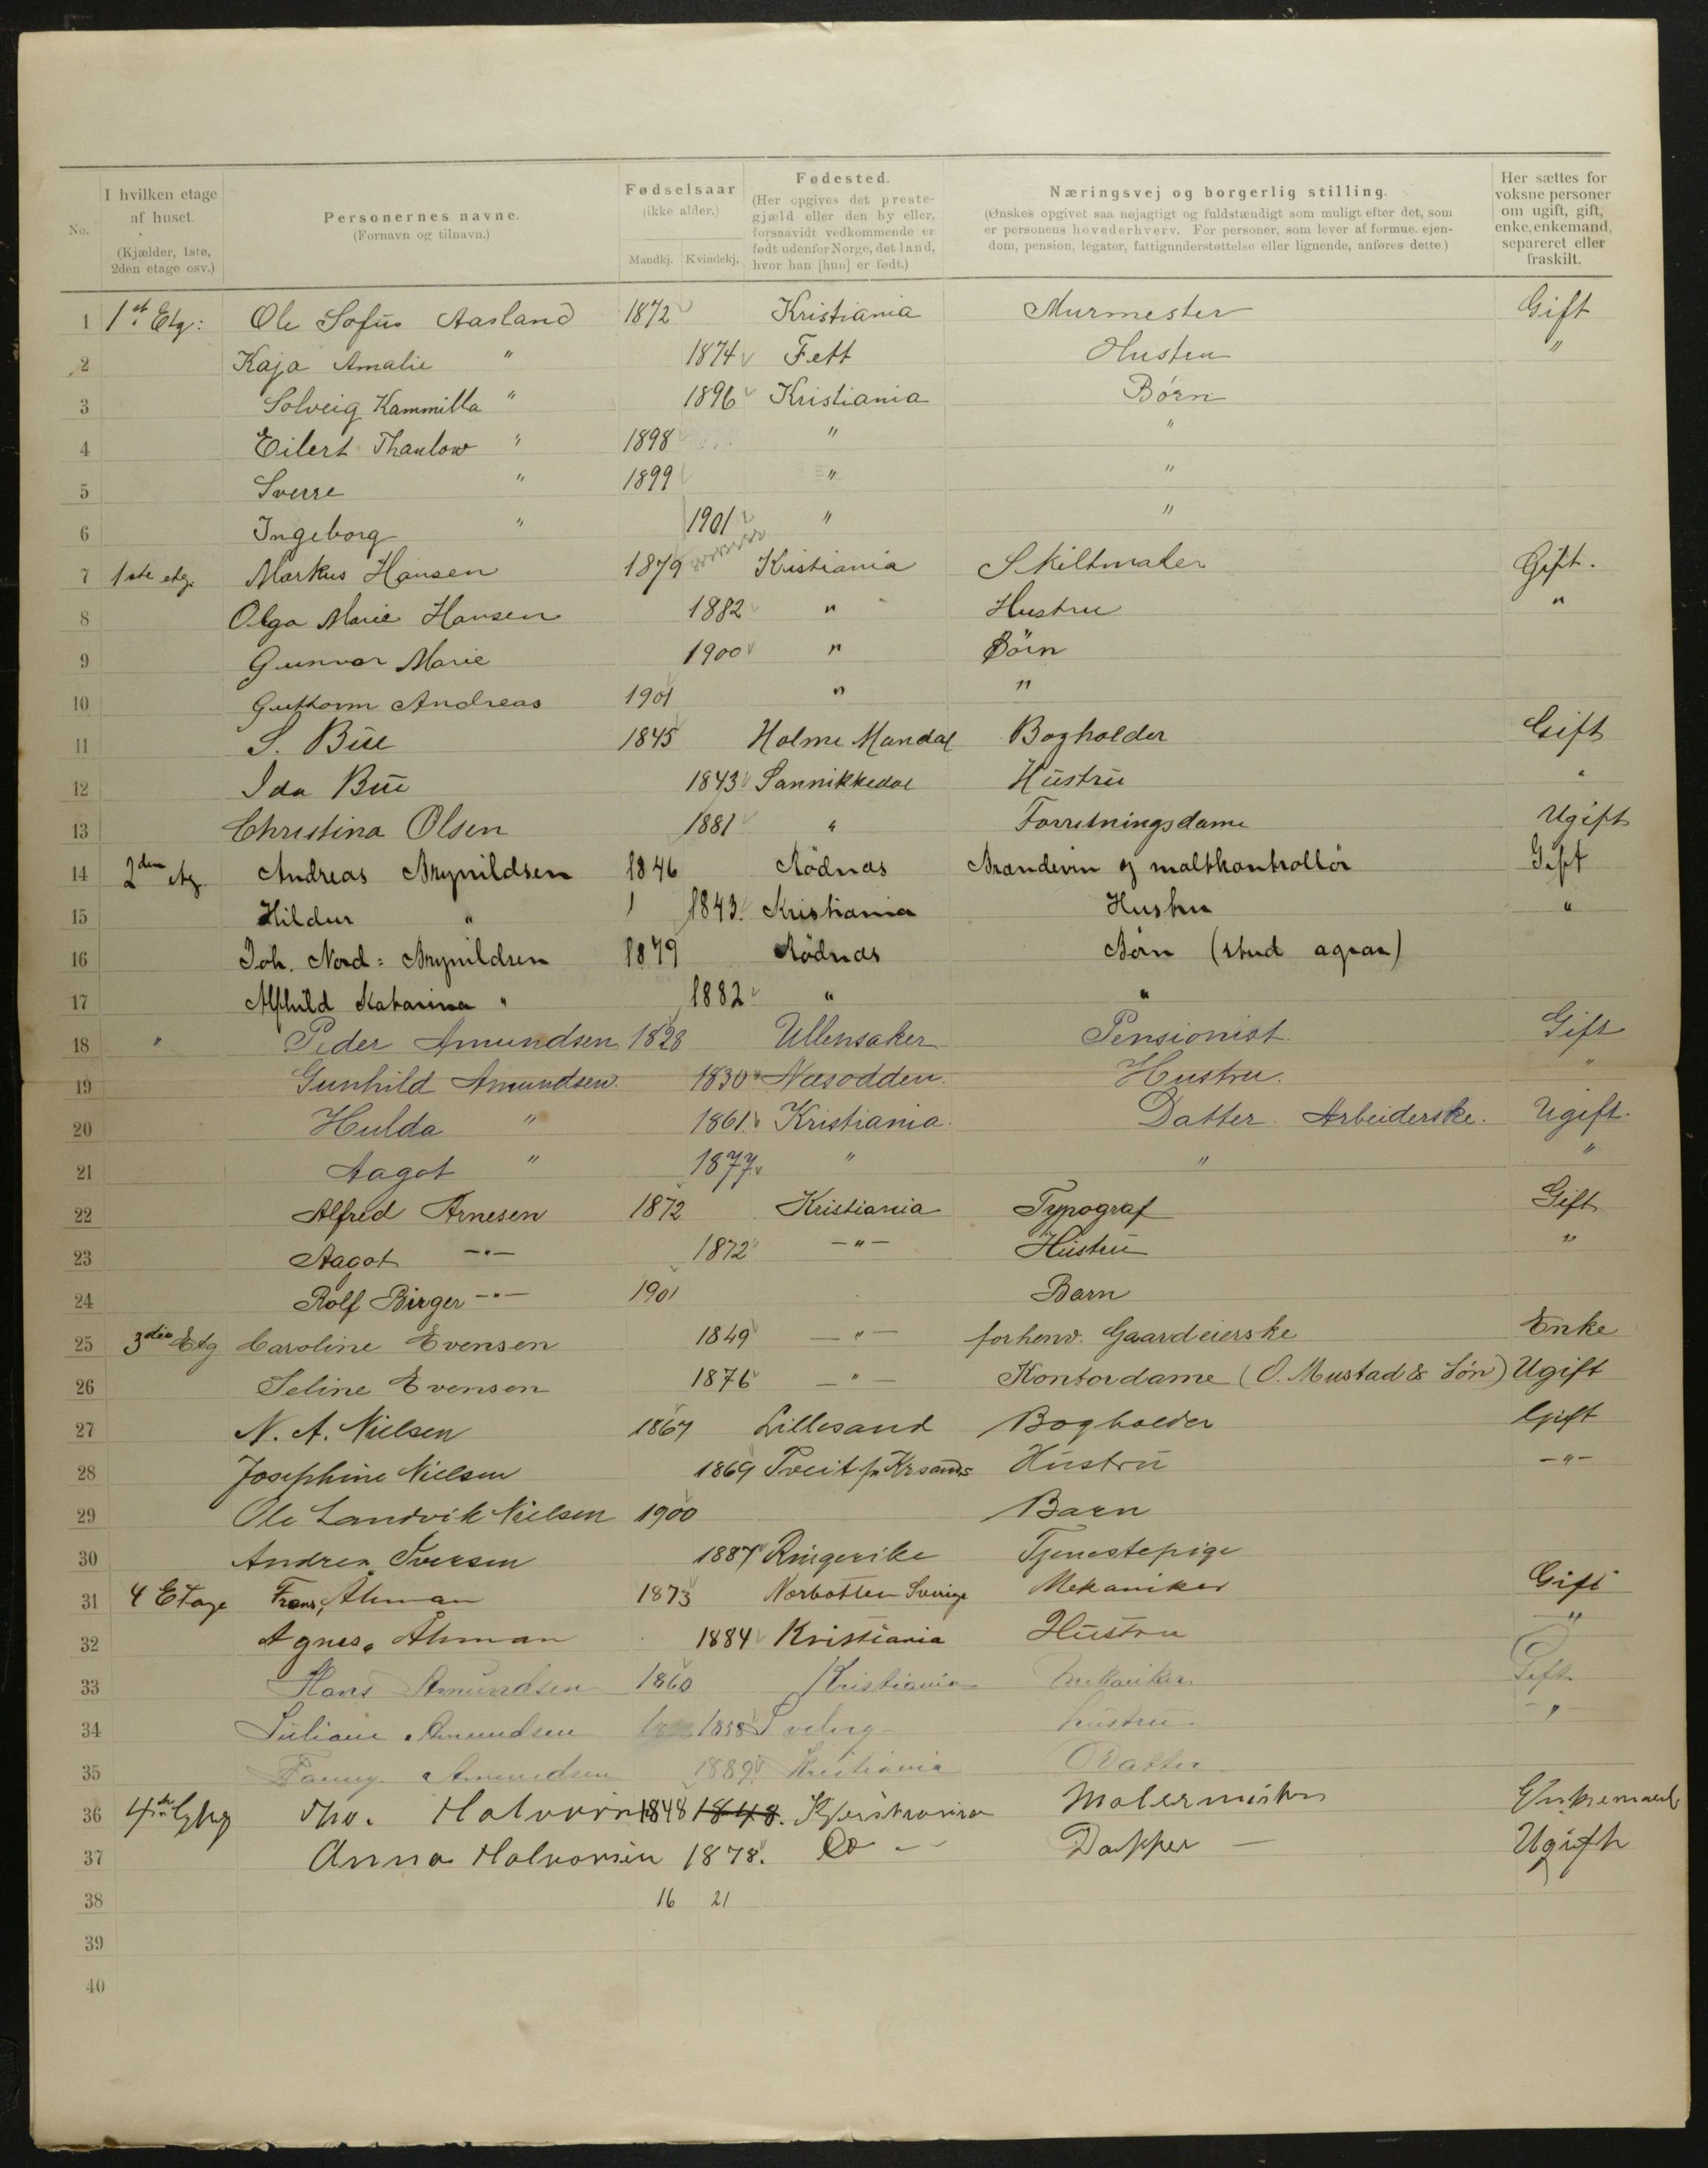 No.
I hvilken etage af huset. (Kjælder, 1ste, 2den etage osv.)
Personernes navne. (Fornavn og tilnavn.)
Fødselsaar (ikke alder.) Mandkj. Kvindekj.
Fødested. (Her opgives det prestegjæld eller den by eller, forsaavidt vedkommende er født udenfor Norge, det land, hvor han [hun] er født.)
Næringsvej og borgerlig stilling. (Ønskes opgivet saa nøjagtigt og fuldstændigt som muligt efter det, som er personens hovederhverv. For personer, som lever af formue, ejendom, pension, legater, fattigunderstøttelse eller lignende, anføres dette.)
Her sættes for voksne personer om ugift, gift, enke, enkemand, separeret eller fraskilt.
1 1st Etg: Ole Sofus Aasland 1872 Kristiania Murmester Gift
2 Kaja Amalie " 1874 Fett Hustru "
3 Solveig Kammilla " 1896 Kristiania Børn
4 Eilert Thaulow " 1898 " "
5 Sverre " 1899 " "
6 Ingeborg " 1901 " "
7 1ste etg. Markus Hansen 1879 Kristiania Skiltmaler Gift.
8 Olga Marie Hansen 1882 " Hustru "
9 Gunvor Marie 1900 " Börn
10 Guthorm Andreas 1901 " "
11 S. Bue 1845 Holme Mandal Bogholder Gift
12 Ida Bue 1843 Sannikkedal Hustru "
13 Christina Olsen 1881 " Forretningsdame Ugift
14 2den etg. Andreas Brynildsen 1846 Rödnæs Brændevin og maltkontrollör Gift
15 Hildur " 1843. Kristiania Hustru "
16 Joh. Nord: Brynildsen 1879 Rödnæs Börn (stud agrar)
17 Alfhild Katarina " 1882 " "
18 " Peder Amundsen 1828 Ullensaker Pensionist. Gift
19 Gunhild Amundsen. 1830 Næsodden. Hustru. "
20 Hulda " 1861. Kristiania. Datter. Arbeiderske. Ugift.
21 Aagot " 1877. " " "
22 Alfred Arnesen 1872 Kristiania Typograf Gift
23 Aagot —"— 1872 —"— Hustru "
24 Rolf Birger —"— 1901 Barn
25 3die Etg Caroline Evensen 1849 —"— forhenv. Gaardeierske Enke
26 Seline Evensen 1876 —"— Kontordame (O. Mustad & Søn) Ugift
27 N. A. Nielsen 1867 Lillesand Bogholder Gift
28 Josephine Nielsen 1869 Tveit pr Krsands Hustru —"—
29 Ole Landvik Nielsen 1900 Barn
30 Andrea Iversen 1887 Ringerike Tjenestepige
31 4 Etage Frans Åhman 1873 Norbotten Sverige Mekaniker Gift
32 Agnes Åhman 1884 Kristiania Hustru "
33 Hans Amundsen 1860 Kristiania Mekaniker Gift
34 Juliane Amundsen 1858 hustru "
35 Fanny Amundsen 1889 Kristiania Datter
36 Tho. 1848 1848. Malermister Enkemand
37 Anna 1878. Do — Ugift
38 16 21
39
40